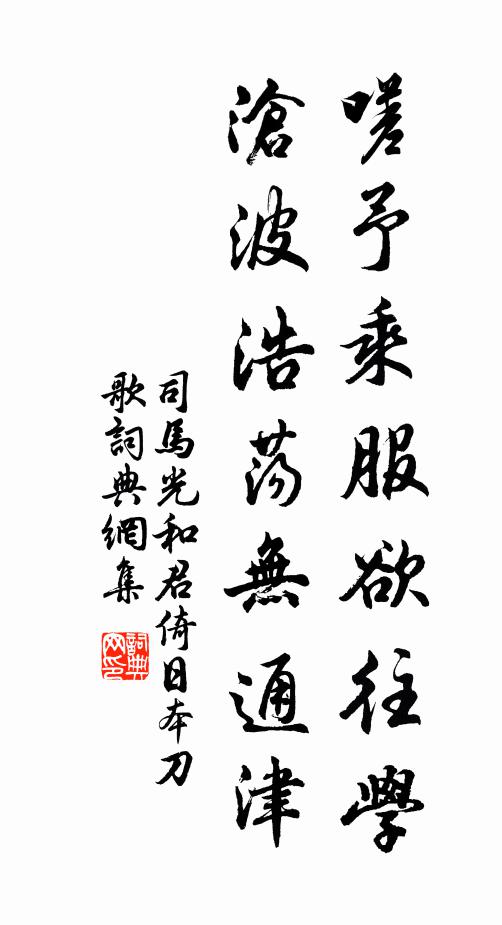 嗟予乘服欲往學
滄波浩蕩無通津
司馬光和君倚日本刀
歌詞典網集
詞典網印